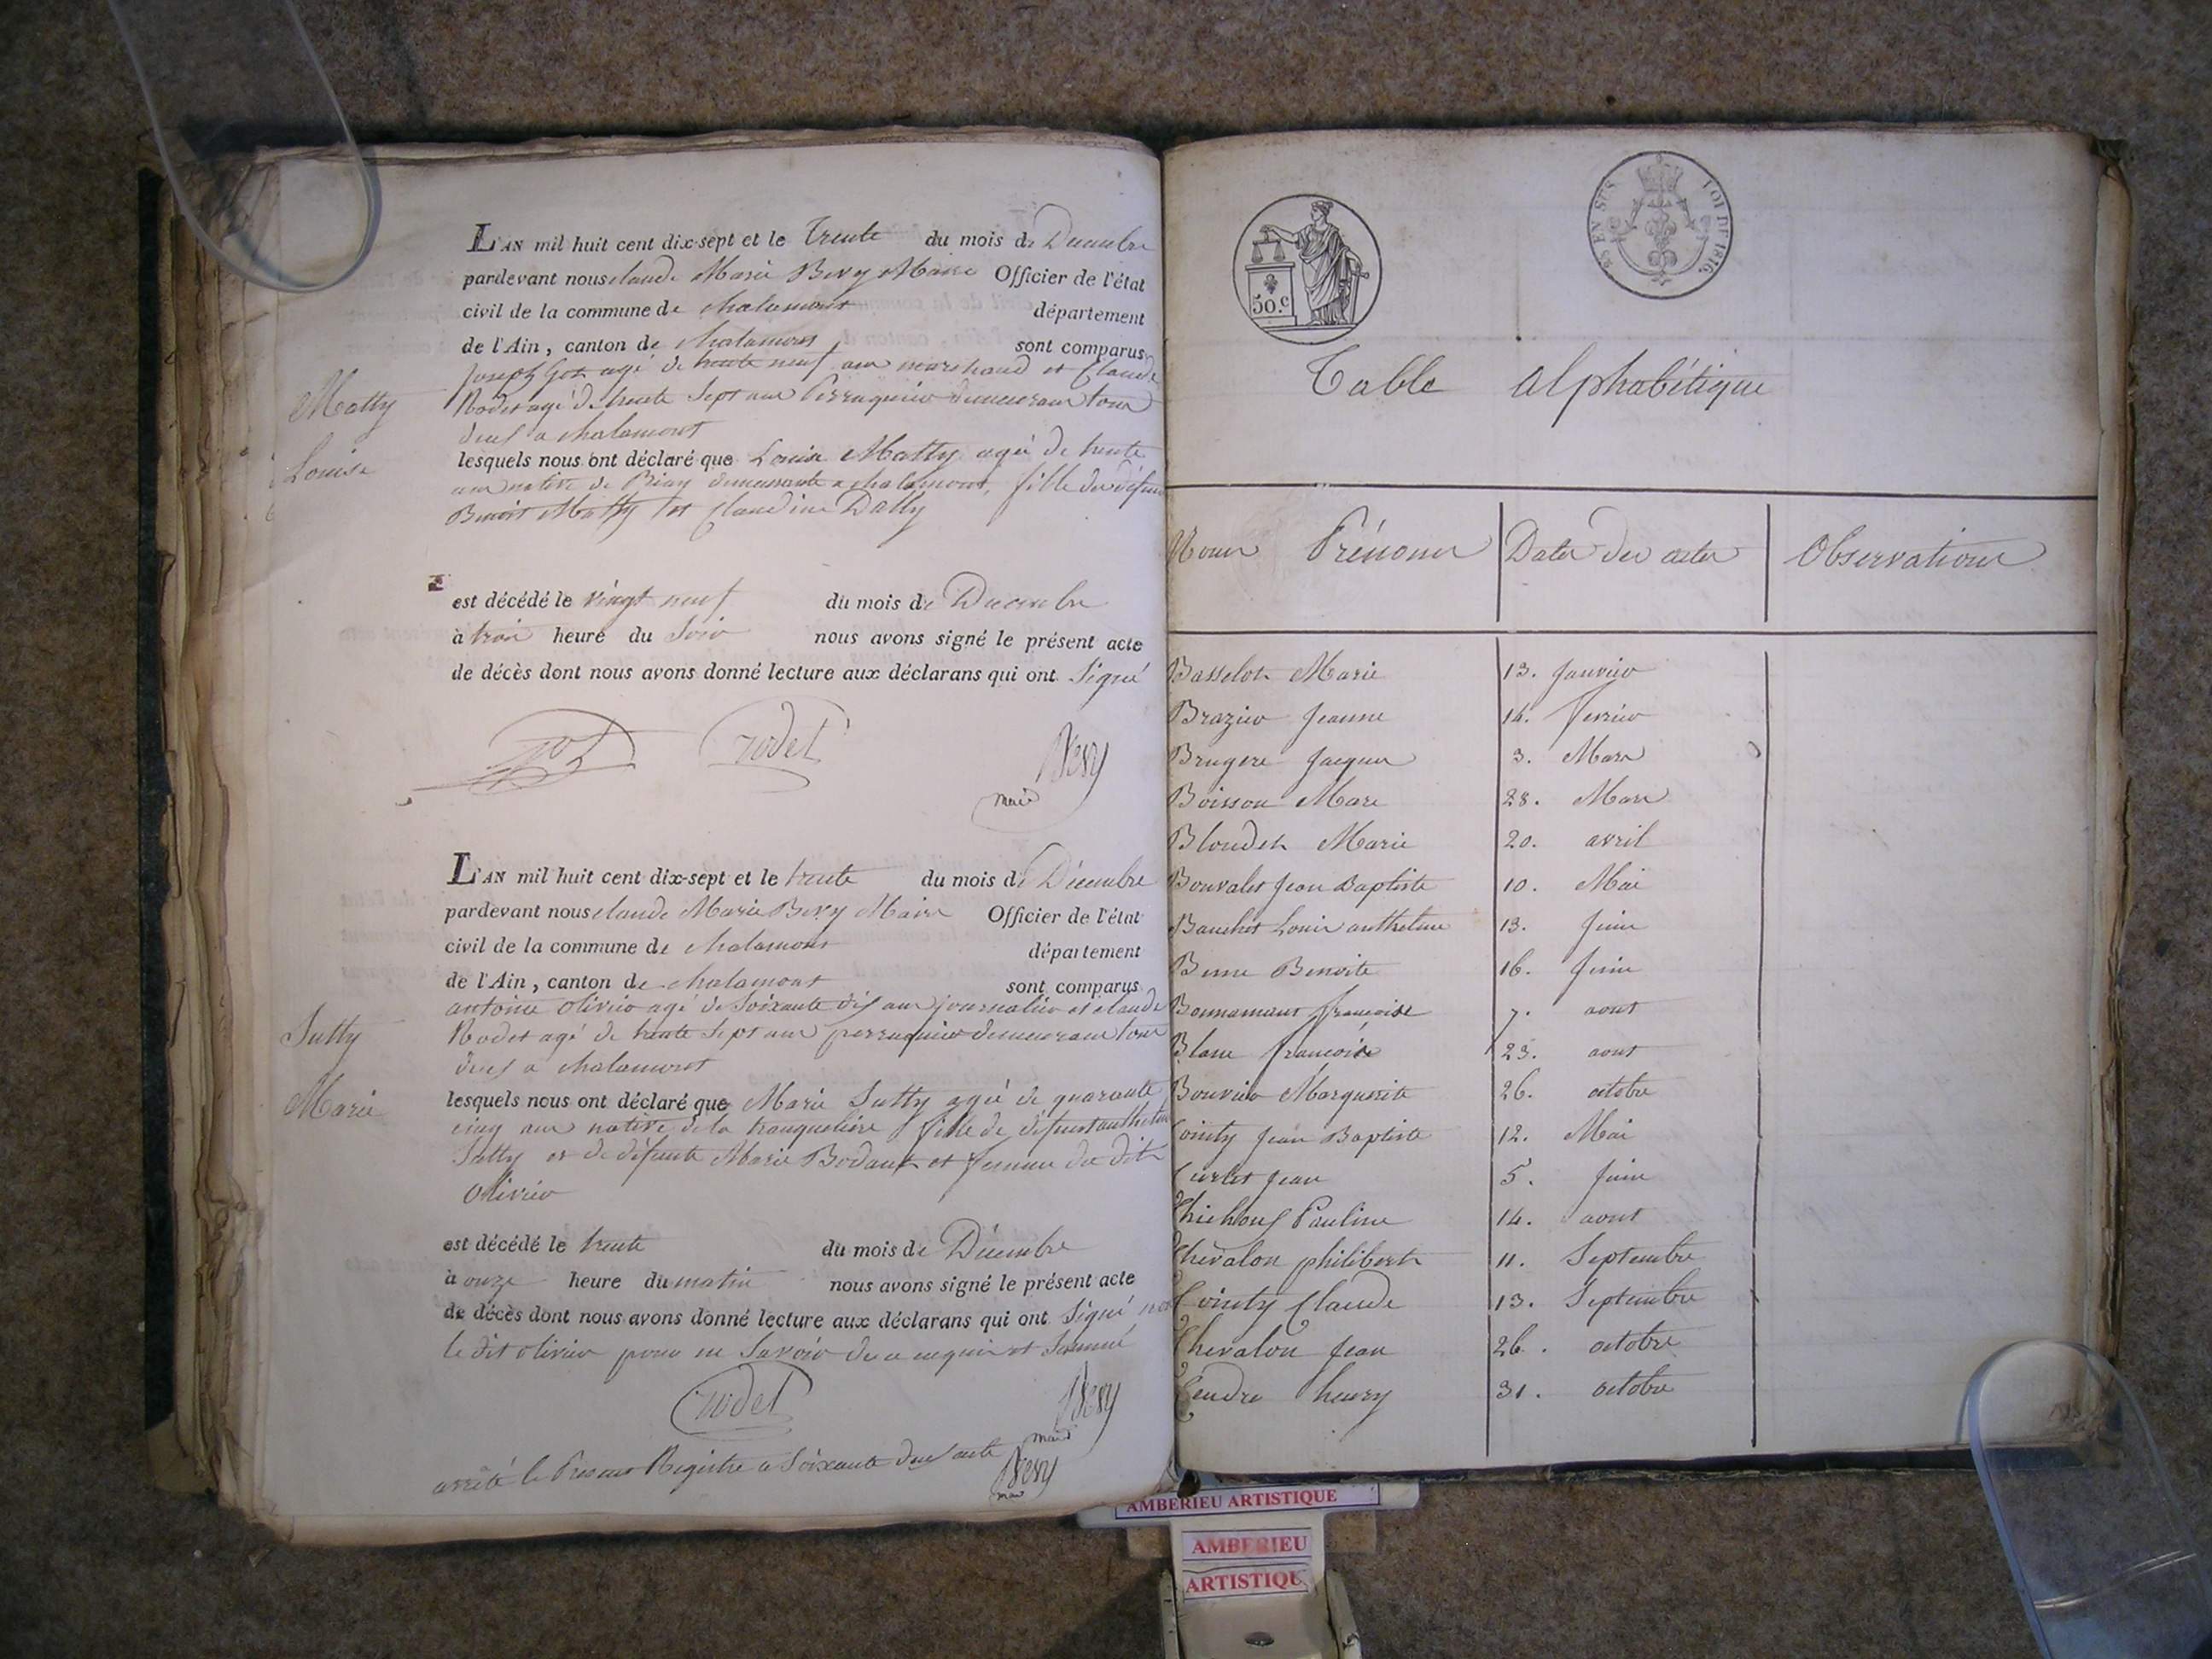 L'AN mil huit cent dix-sept et le trente du mois de Decembre
pardevant nous claude Marie Bevy Maire Officier de l'état
civil de la commune de chalamont département
de l'Ain, canton de chalamont sont comparus
Joseph Got agé de trente neuf ans marchand et Claude
Rodet agé de trente Sept ans Perruquier demeurant tous
deux a chalamont
Matty
Louise
lesquels nous ont déclaré que Louise Matty agée de trente
ans native de demeurante a chalamont, fille du défunt
Benoit Matty et Claudine Dally
est décédé le vingt neuf du mois de Decembre
à trois heure du Soir nous avons signé le présent acte
de décès dont nous avons donné lecture aux déclarans qui ont Signé
got rodet Bevy
maire
L'AN mil huit cent dix-sept et le trente du mois de Décembre
pardevant nous claude Marie Bevy Maire Officier de l'état
civil de la commune de chalamont département
de l'Ain, canton de chalamont sont comparus
antoine olivier agé de Soixante dix ans journalier et claude
Rodet agé de trente Sept ans perruquier demeurant tous
deux a chalamont
Sutty
Marie
lesquels nous ont déclaré que Marie Sutty agée de quarante
cinq ans native de la tranqueliere fille de défunt anthelme
Sutty et de défunte Marie Bodant et femme du dit
Olivier
est décédé le trente du mois de Décembre
à onze heure du matin nous avons signé le présent acte
de décès dont nous avons donné lecture aux déclarans qui ont Signé non
le dit olivier pour ne Savoir de ce enquis et Sommé
rodet Bevy
maire
arrêté le Present Registre a Soixante deux acte Bevy
maire
50.c
EN SUS
LOI DE 1816.
Table alphabétique
Noms Prénoms Dates des actes Observations
Basselot Marie 13. Janvier
Brazier Jeanne 14. fevrier
Brugere Jacques 3. Mars
Boisson Marie 28. Mars
Blondet Marie 20. avril
Bouvalet Jean Baptiste 10. Mai
Banchet Louis anthelme 13. Juin
Benoite 16. Juin
Bonnamant françoise 7. aout
Blanc françoise 23. aout
Bouvier Marguerite 26. octobre
Cointy Jean Baptiste 12. Mai
Curlet Jean 5. Juin
Pauline 14. aout
Chevalon philibert 11. Septembre
Cointy Claude 13. Septembre
Chevalon Jean 26. octobre
Cendre henry 31. octobre
AMBERIEU ARTISTIQUE
AMBERIEU
ARTISTIQUE